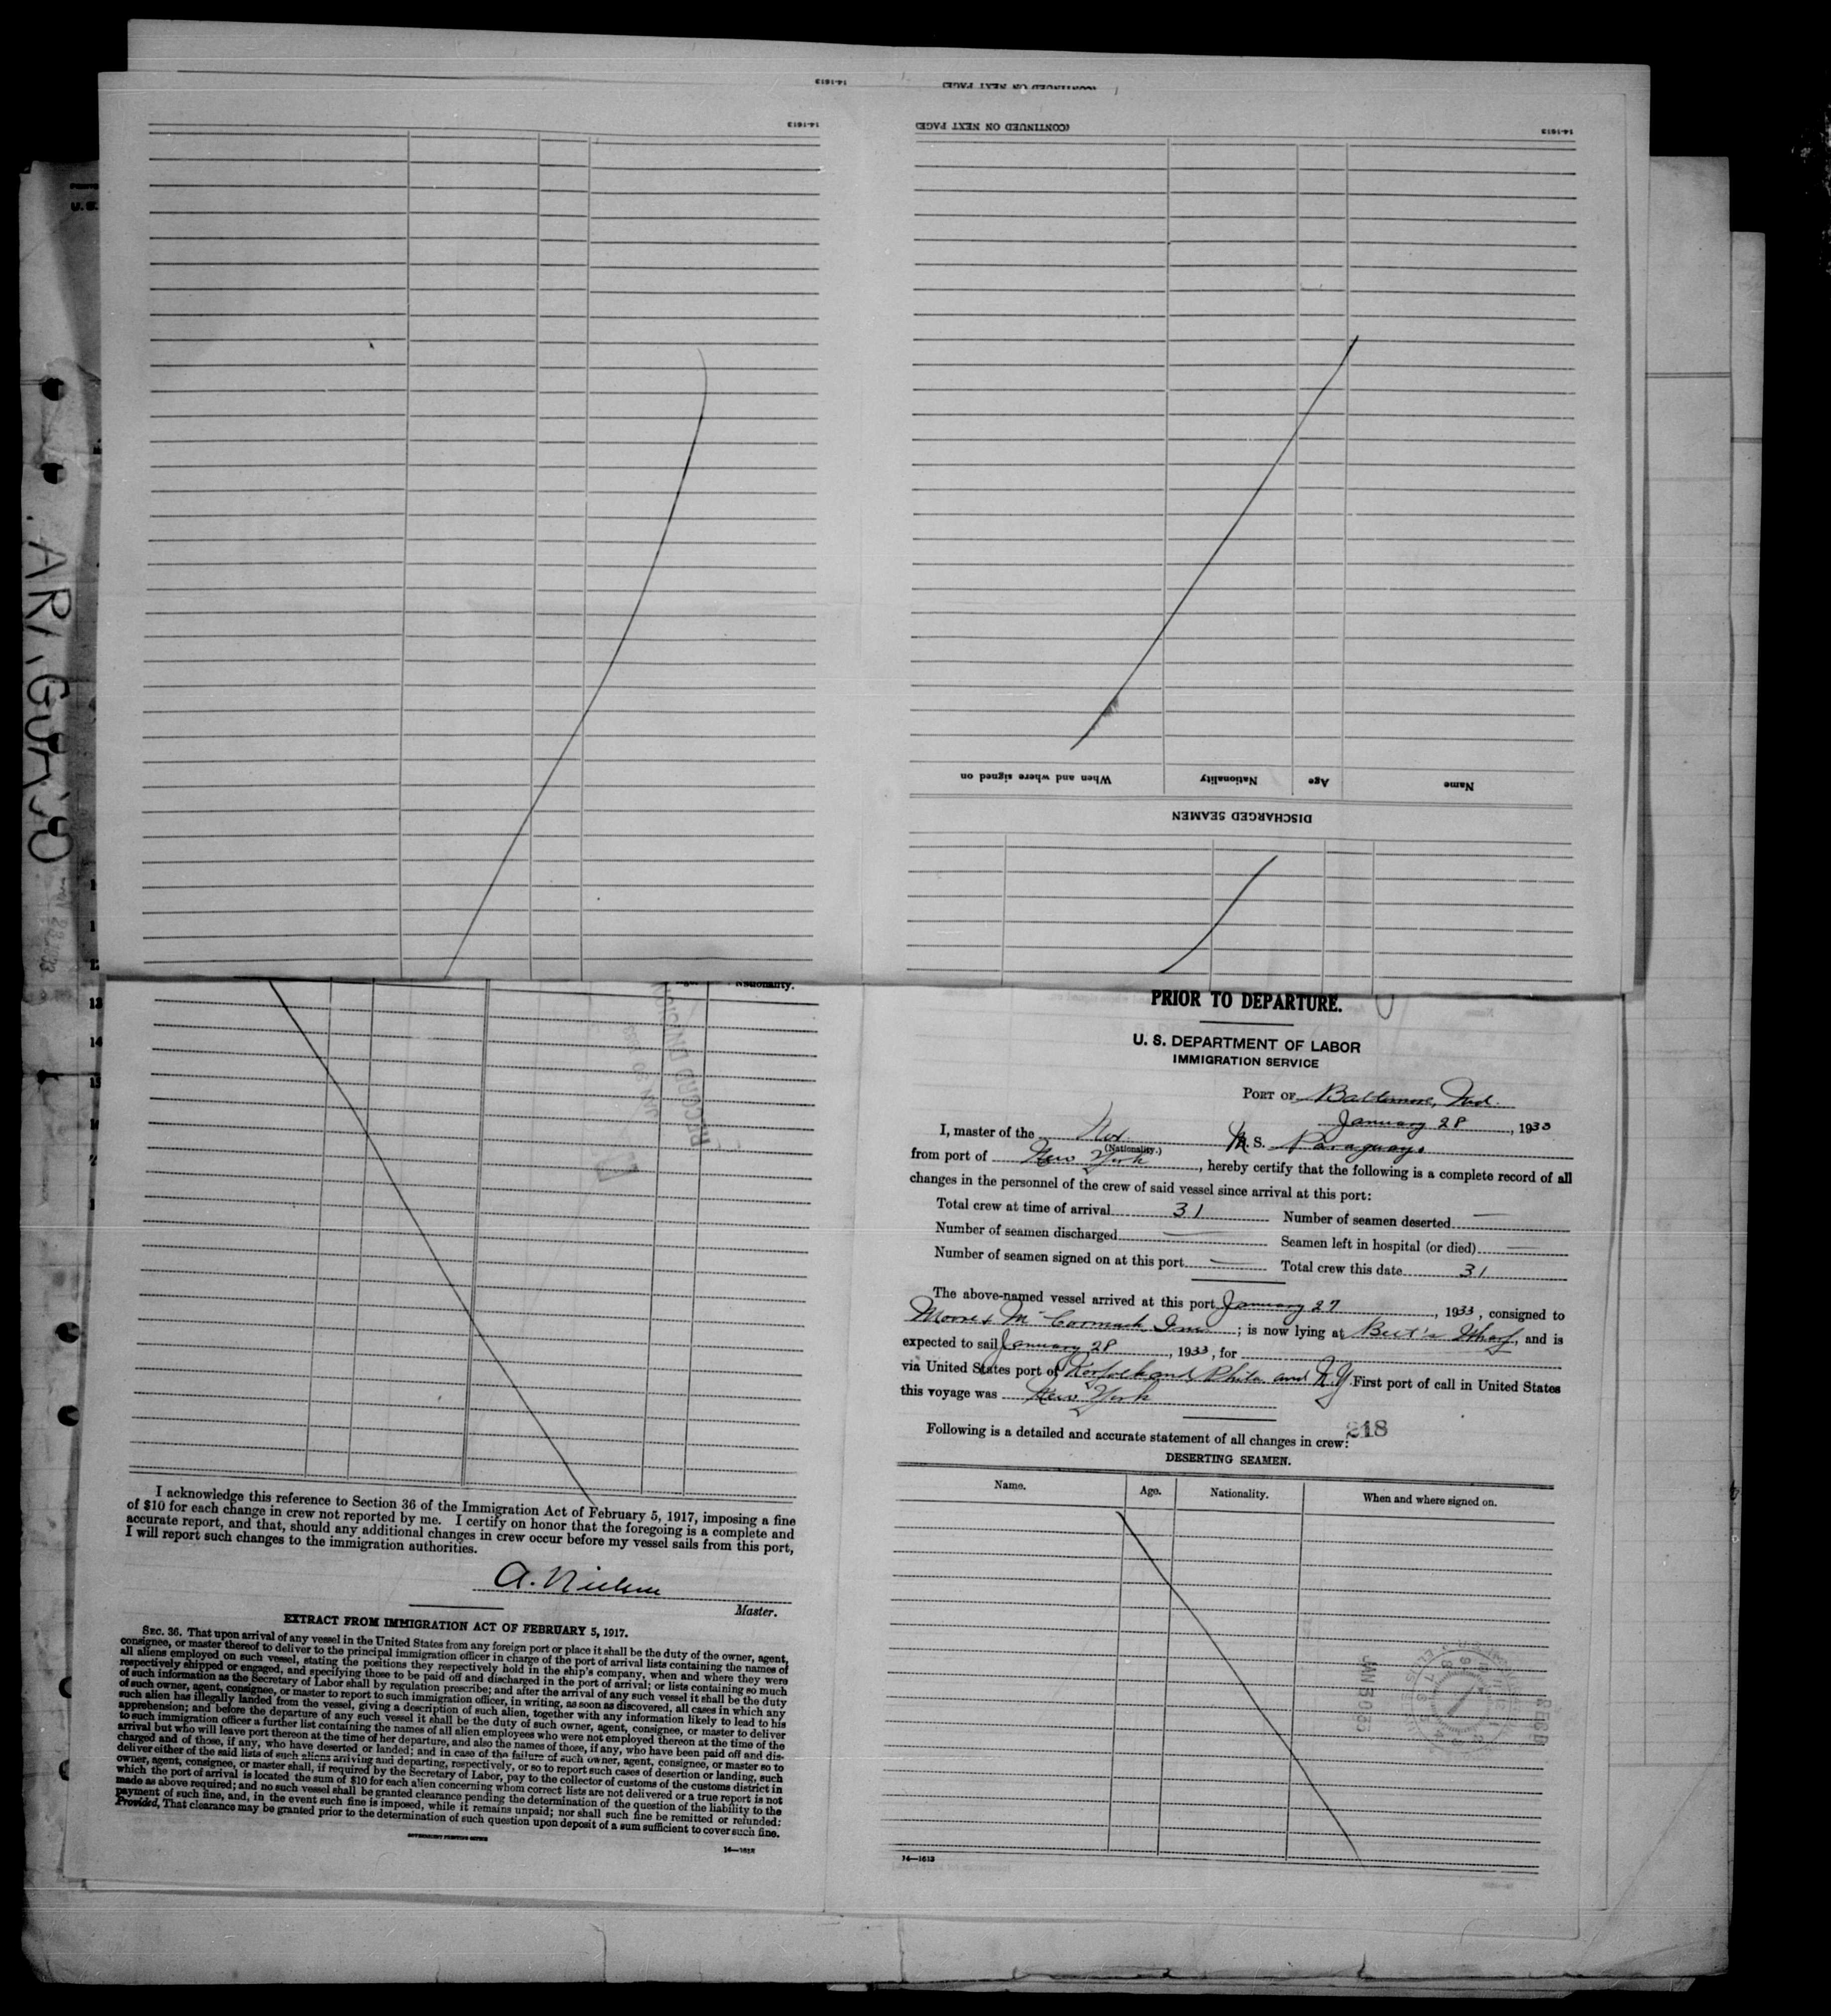 (CONTINUED ON NEXT PAGE)
14-1613
(CONTINUED ON NEXT PAGE)
14-1613
14-1613
When and where signed on
Nationality
Age
Name
DISCHARGED SEAMEN
Nationality.
RECORD DIVISION
13
14
15
PRIOR TO DEPARTURE.
U. S. DEPARTMENT OF LABOR
IMMIGRATION SERVICE
PORT OF Baltimore, Md.
January 28, 1933
I, master of the Nor. M. S. Paraguay.
(Nationality.)
from port of New York, hereby certify that the following is a complete record of all
changes in the personnel of the crew of said vessel since arrival at this port:
Total crew at time of arrival 31 Number of seamen deserted —
Number of seamen discharged — Seamen left in hospital (or died) —
Number of seamen signed on at this port — Total crew this date 31
The above-named vessel arrived at this port January 27, 1933, consigned to
Moore & McCormack Inc; is now lying at Wharf, and is
expected to sail January 28, 1933, for
via United States port of Norfolk and Phila. and N.Y. First port of call in United States
this voyage was New York
218
Following is a detailed and accurate statement of all changes in crew:
DESERTING SEAMEN.
Name. Age. Nationality. When and where signed on.
JAN 30 33
REC'D
14—1613
I acknowledge this reference to Section 36 of the Immigration Act of February 5, 1917, imposing a fine
of $10 for each change in crew not reported by me. I certify on honor that the foregoing is a complete and
accurate report, and that, should any additional changes in crew occur before my vessel sails from this port,
I will report such changes to the immigration authorities.
A. Nielsen
Master.
EXTRACT FROM IMMIGRATION ACT OF FEBRUARY 5, 1917.
SEC. 36. That upon arrival of any vessel in the United States from any foreign port or place it shall be the duty of the owner, agent,
consignee, or master thereof to deliver to the principal immigration officer in charge of the port of arrival lists containing the names of
all aliens employed on such vessel, stating the positions they respectively hold in the ship's company, when and where they were
respectively shipped or engaged, and specifying those to be paid off and discharged in the port of arrival; or lists containing so much
of such information as the Secretary of Labor shall by regulation prescribe; and after the arrival of any such vessel it shall be the duty
of such owner, agent, consignee, or master to report to such immigration officer, in writing, as soon as discovered, all cases in which any
such alien has illegally landed from the vessel, giving a description of such alien, together with any information likely to lead to his
apprehension; and before the departure of any such vessel it shall be the duty of such owner, agent, consignee, or master to deliver
to such immigration officer a further list containing the names of all alien employees who were not employed thereon at the time of the
arrival but who will leave port thereon at the time of her departure, and also the names of those, if any, who have been paid off and dis-
charged and of those, if any, who have deserted or landed; and in case of the failure of such owner, agent, consignee, or master so to
deliver either of the said lists of such aliens arriving and departing, respectively, or so to report such cases of desertion or landing, such
owner, agent, consignee, or master shall, if required by the Secretary of Labor, pay to the collector of customs of the customs district in
which the port of arrival is located the sum of $10 for each alien concerning whom correct lists are not delivered or a true report is not
made as above required; and no such vessel shall be granted clearance pending the determination of the question of the liability to the
payment of such fine, and, in the event such fine is imposed, while it remains unpaid; nor shall such fine be remitted or refunded:
Provided, That clearance may be granted prior to the determination of such question upon deposit of a sum sufficient to cover such fine.
GOVERNMENT PRINTING OFFICE
14—1613